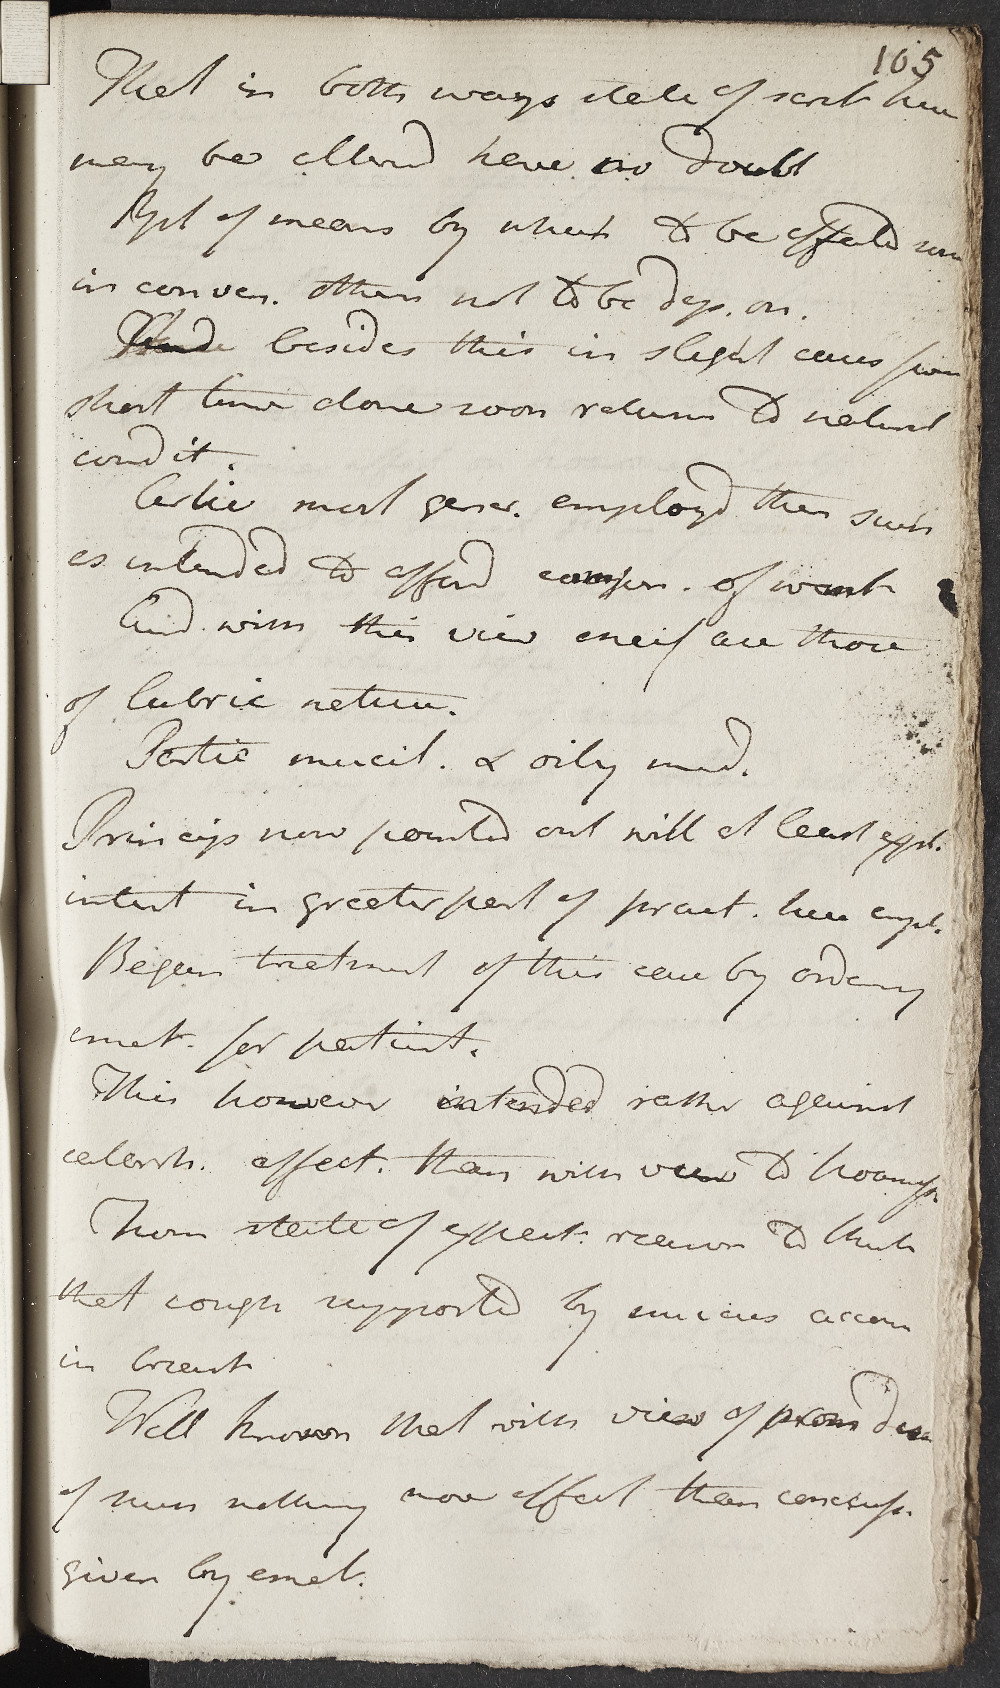 165
That in both ways state of
may be allowd have no doubt
of means by which to be effected
in conven. others not to be dep. on.
besides this in slight cases from
short time alone soon returns to natural
condit.
Artic most gener. employd then such
as intended to afford of want
And with this view chiefl are those
of lubric nature.
Partic mucil. & oily med.
Princips now pointed out will at least expl.
intent in greater part of pract. here empl.
Began treatment of this case by ordany
emet. for patient.
This however intended rather against
catarrh. affect. than with view to
From state of expect. reason to think
that cough supported by mucus accum
in breast
Well known that with view of
of mucus nothing more effect than concuss.
given by emet.